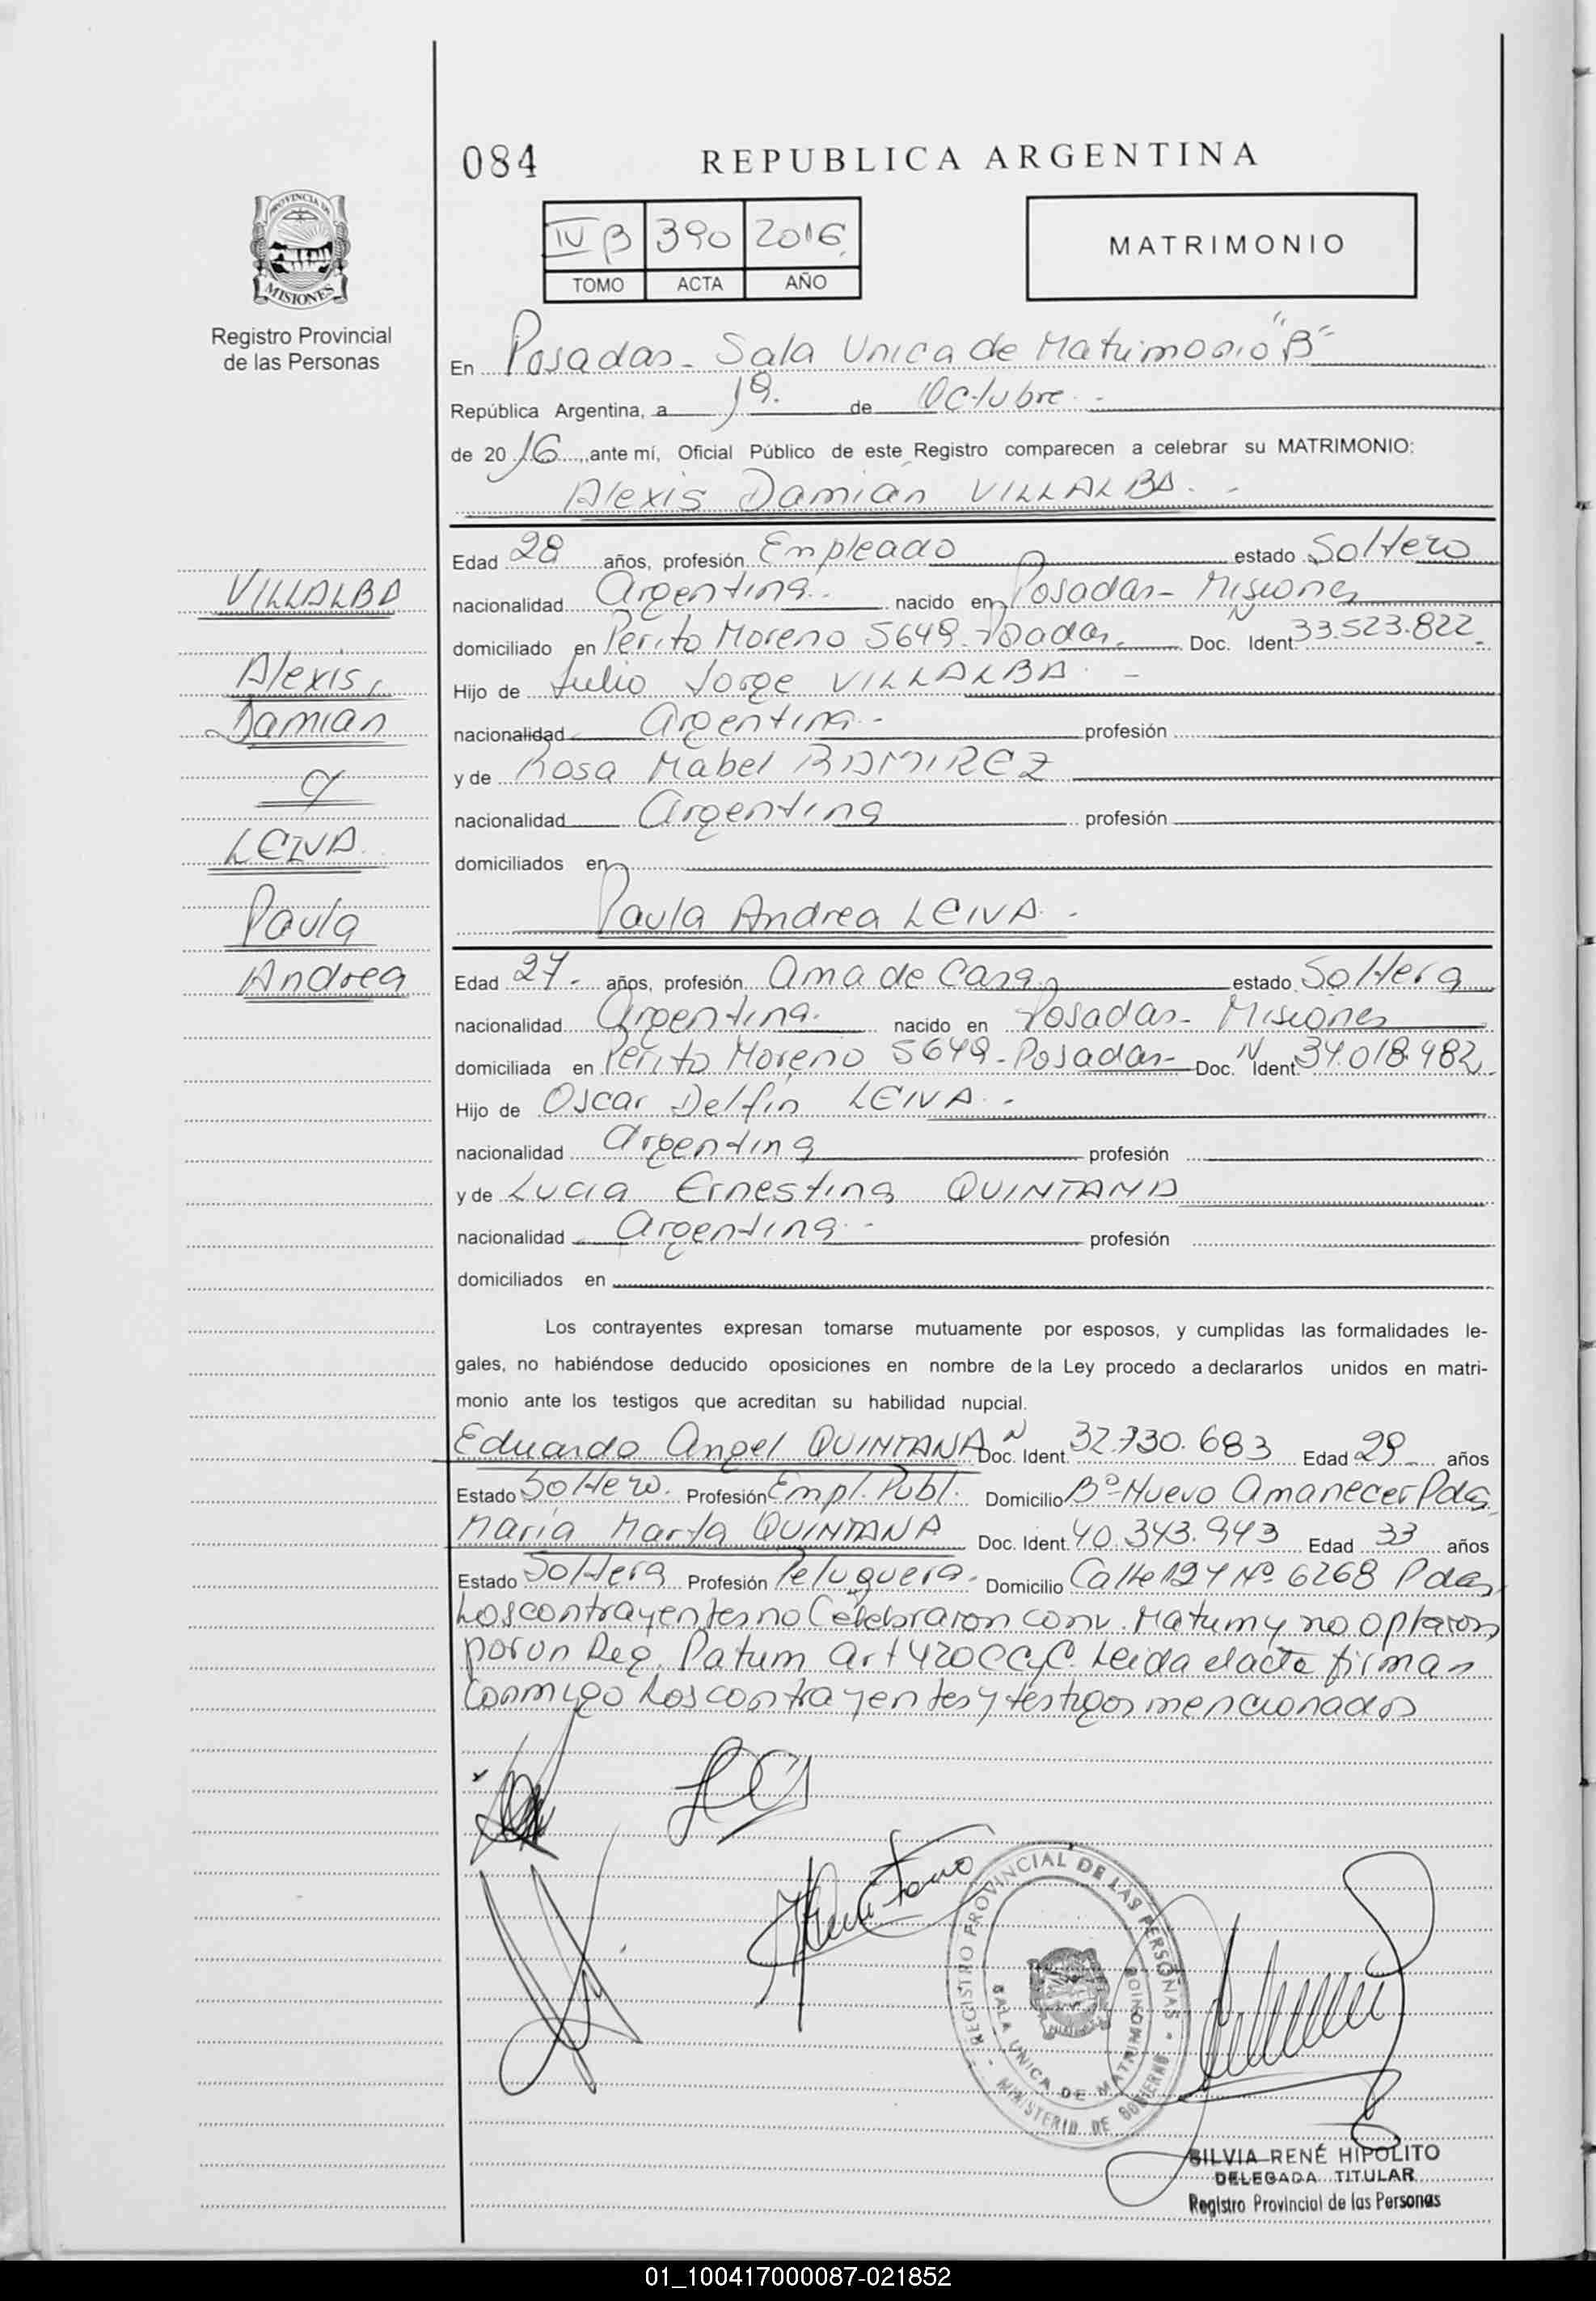 084
REPUBLICA ARGENTINA
PROVINCIA DE
MISIONES
Registro Provincial
de las Personas
IV B 390 2016
TOMO ACTA AÑO
MATRIMONIO
En Posadas - Sala Unica de Matrimonio "B"
República Argentina, a 19. de Octubre -
de 20 16 ante mí, Oficial Público de este Registro comparecen a celebrar su MATRIMONIO:
Alexis Damián VILLALBA. -
VILLALBA
Alexis,
Damian
y
LEIVA.
Paula
Andrea
Edad 28 años, profesión Empleado estado Soltero
nacionalidad Argentina. nacido en Posadas - Misiones
domiciliado en Perito Moreno 5649 - Posadas - Doc. Ident. N 33.523.822 -
Hijo de Julio Jorge VILLALBA. -
nacionalidad Argentina. - profesión
y de Rosa Mabel RAMIREZ
nacionalidad Argentina profesión
domiciliados en
Paula Andrea LEIVA. -
Edad 27. años, profesión Ama de Casa estado Soltera
nacionalidad Argentina. nacido en Posadas - Misiones
domiciliada en Perito Moreno 5649 - Posadas - Doc. Ident. N 34.018.982
Hijo de Oscar Delfín LEIVA. -
nacionalidad Argentina profesión
y de Lucia Ernestina QUINTANA
nacionalidad Argentina. - profesión
domiciliados en
Los contrayentes expresan tomarse mutuamente por esposos, y cumplidas las formalidades le-
gales, no habiéndose deducido oposiciones en nombre de la Ley procedo a declararlos unidos en matri-
monio ante los testigos que acreditan su habilidad nupcial.
Eduardo Angel QUINTANA Doc. Ident. N 32.730.683 Edad 29 años
Estado Soltero. Profesión Empl. Publ. Domicilio Bº Nuevo Amanecer Pdas.
María Marta QUINTANA Doc. Ident. 40.343.943 Edad 33 años
Estado Soltera Profesión Peluquera. Domicilio Calle 124 Nº 6268 Pdas.
Los contrayentes no Celebraron conv. Matrim y no optaron
por un Reg. Patrim Art 420 CCyC. Leida el acta firman
conmigo Los contrayentes y testigos mencionados
REGISTRO PROVINCIAL DE LAS PERSONAS
SALA UNICA DE MATRIMONIOS
MINISTERIO DE GOBIERNO
SILVIA RENÉ HIPÓLITO
DELEGADA TITULAR
Registro Provincial de las Personas
01_100417000087-021852